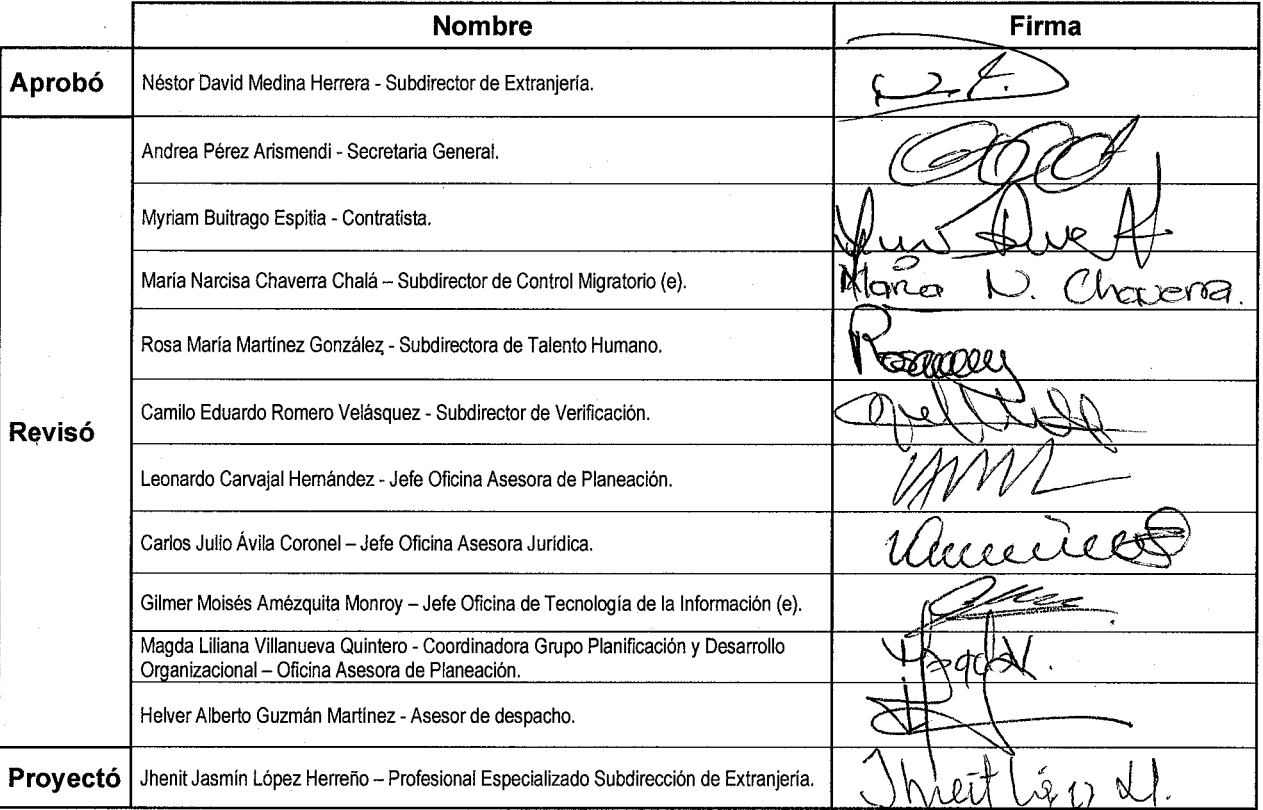 Nombre Firma
Aprobó Néstor David Medina Herrera - Subdirector de Extranjería.
Andrea Pérez Arismendi - Secretaria General.
Myriam Buitrago Espitia - Contratista.
María Narcisa Chaverra Chalá – Subdirector de Control Migratorio (e). María N. Chaverra.
Rosa María Martínez González - Subdirectora de Talento Humano.
Revisó Camilo Eduardo Romero Velásquez - Subdirector de Verificación.
Leonardo Carvajal Hernández - Jefe Oficina Asesora de Planeación.
Carlos Julio Ávila Coronel – Jefe Oficina Asesora Jurídica.
Gilmer Moisés Amézquita Monroy – Jefe Oficina de Tecnología de la Información (e).
Magda Liliana Villanueva Quintero - Coordinadora Grupo Planificación y Desarrollo
Organizacional – Oficina Asesora de Planeación. MagdaV.
Helver Alberto Guzmán Martínez - Asesor de despacho.
Proyectó Jhenit Jasmín López Herreño – Profesional Especializado Subdirección de Extranjería.